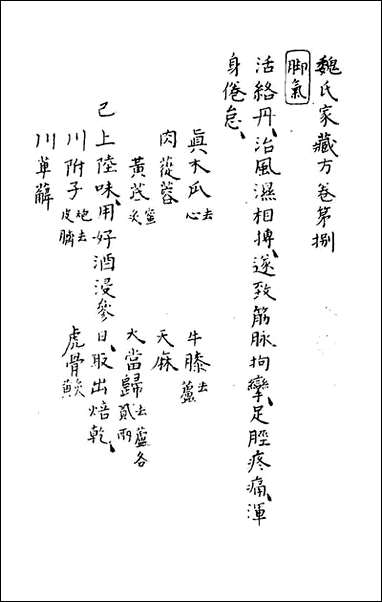 魏氏家藏方卷第捌
脚氣
活絡丹、治風濕相摶、遂致筋脉拘攣、足脛疼痛、渾
身倦怠、
眞木瓜去心 牛膝去蘆
肉蓯蓉 天麻
黃芪蜜炙 大當歸去蘆各貳兩
已上陸味、用好酒浸參日、取出焙乾、
川附子炮去皮臍 虎骨炙黃
川萆薢